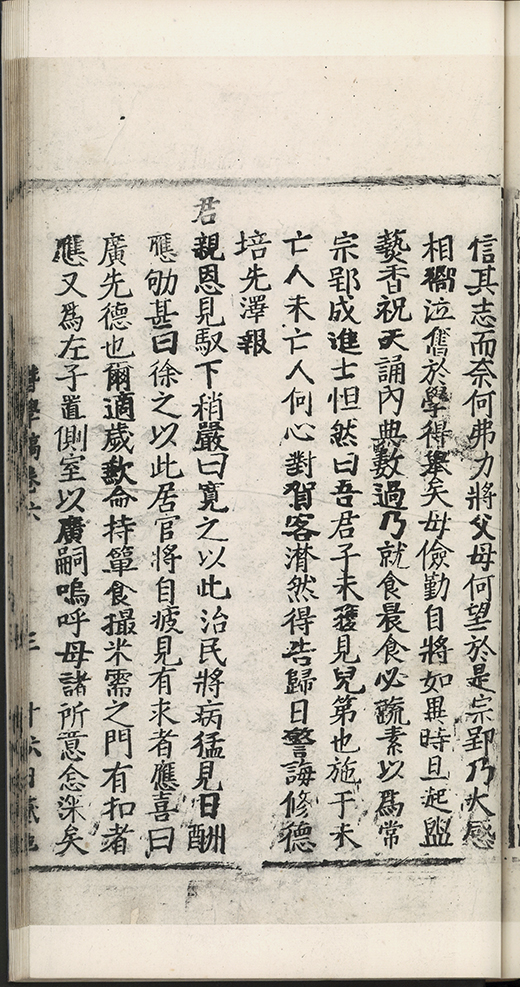 信其志而奈何弗力將父母何望於是宗郢乃大感
相嚮泣奮於學得舉矣母儉勤自將如異時旦起盥
爇香祝天誦內典數過乃就食晨食必蔬素以爲常
宗郢成進士怛然曰吾君子未獲見兒第也施于未
亡人未亡人何心對賀客潸然得告歸日警誨修德
培先澤報
君親恩見馭下稍嚴曰寬之以此治民將病猛見日酬
應劬甚曰徐之以此居官將自疲見有求者應喜曰
廣先德也爾適歲歉侖持簞食撮米需之門有扣者
應又爲左子置側室以廣嗣嗚呼母諸所意念深矣
學稿卷六
三